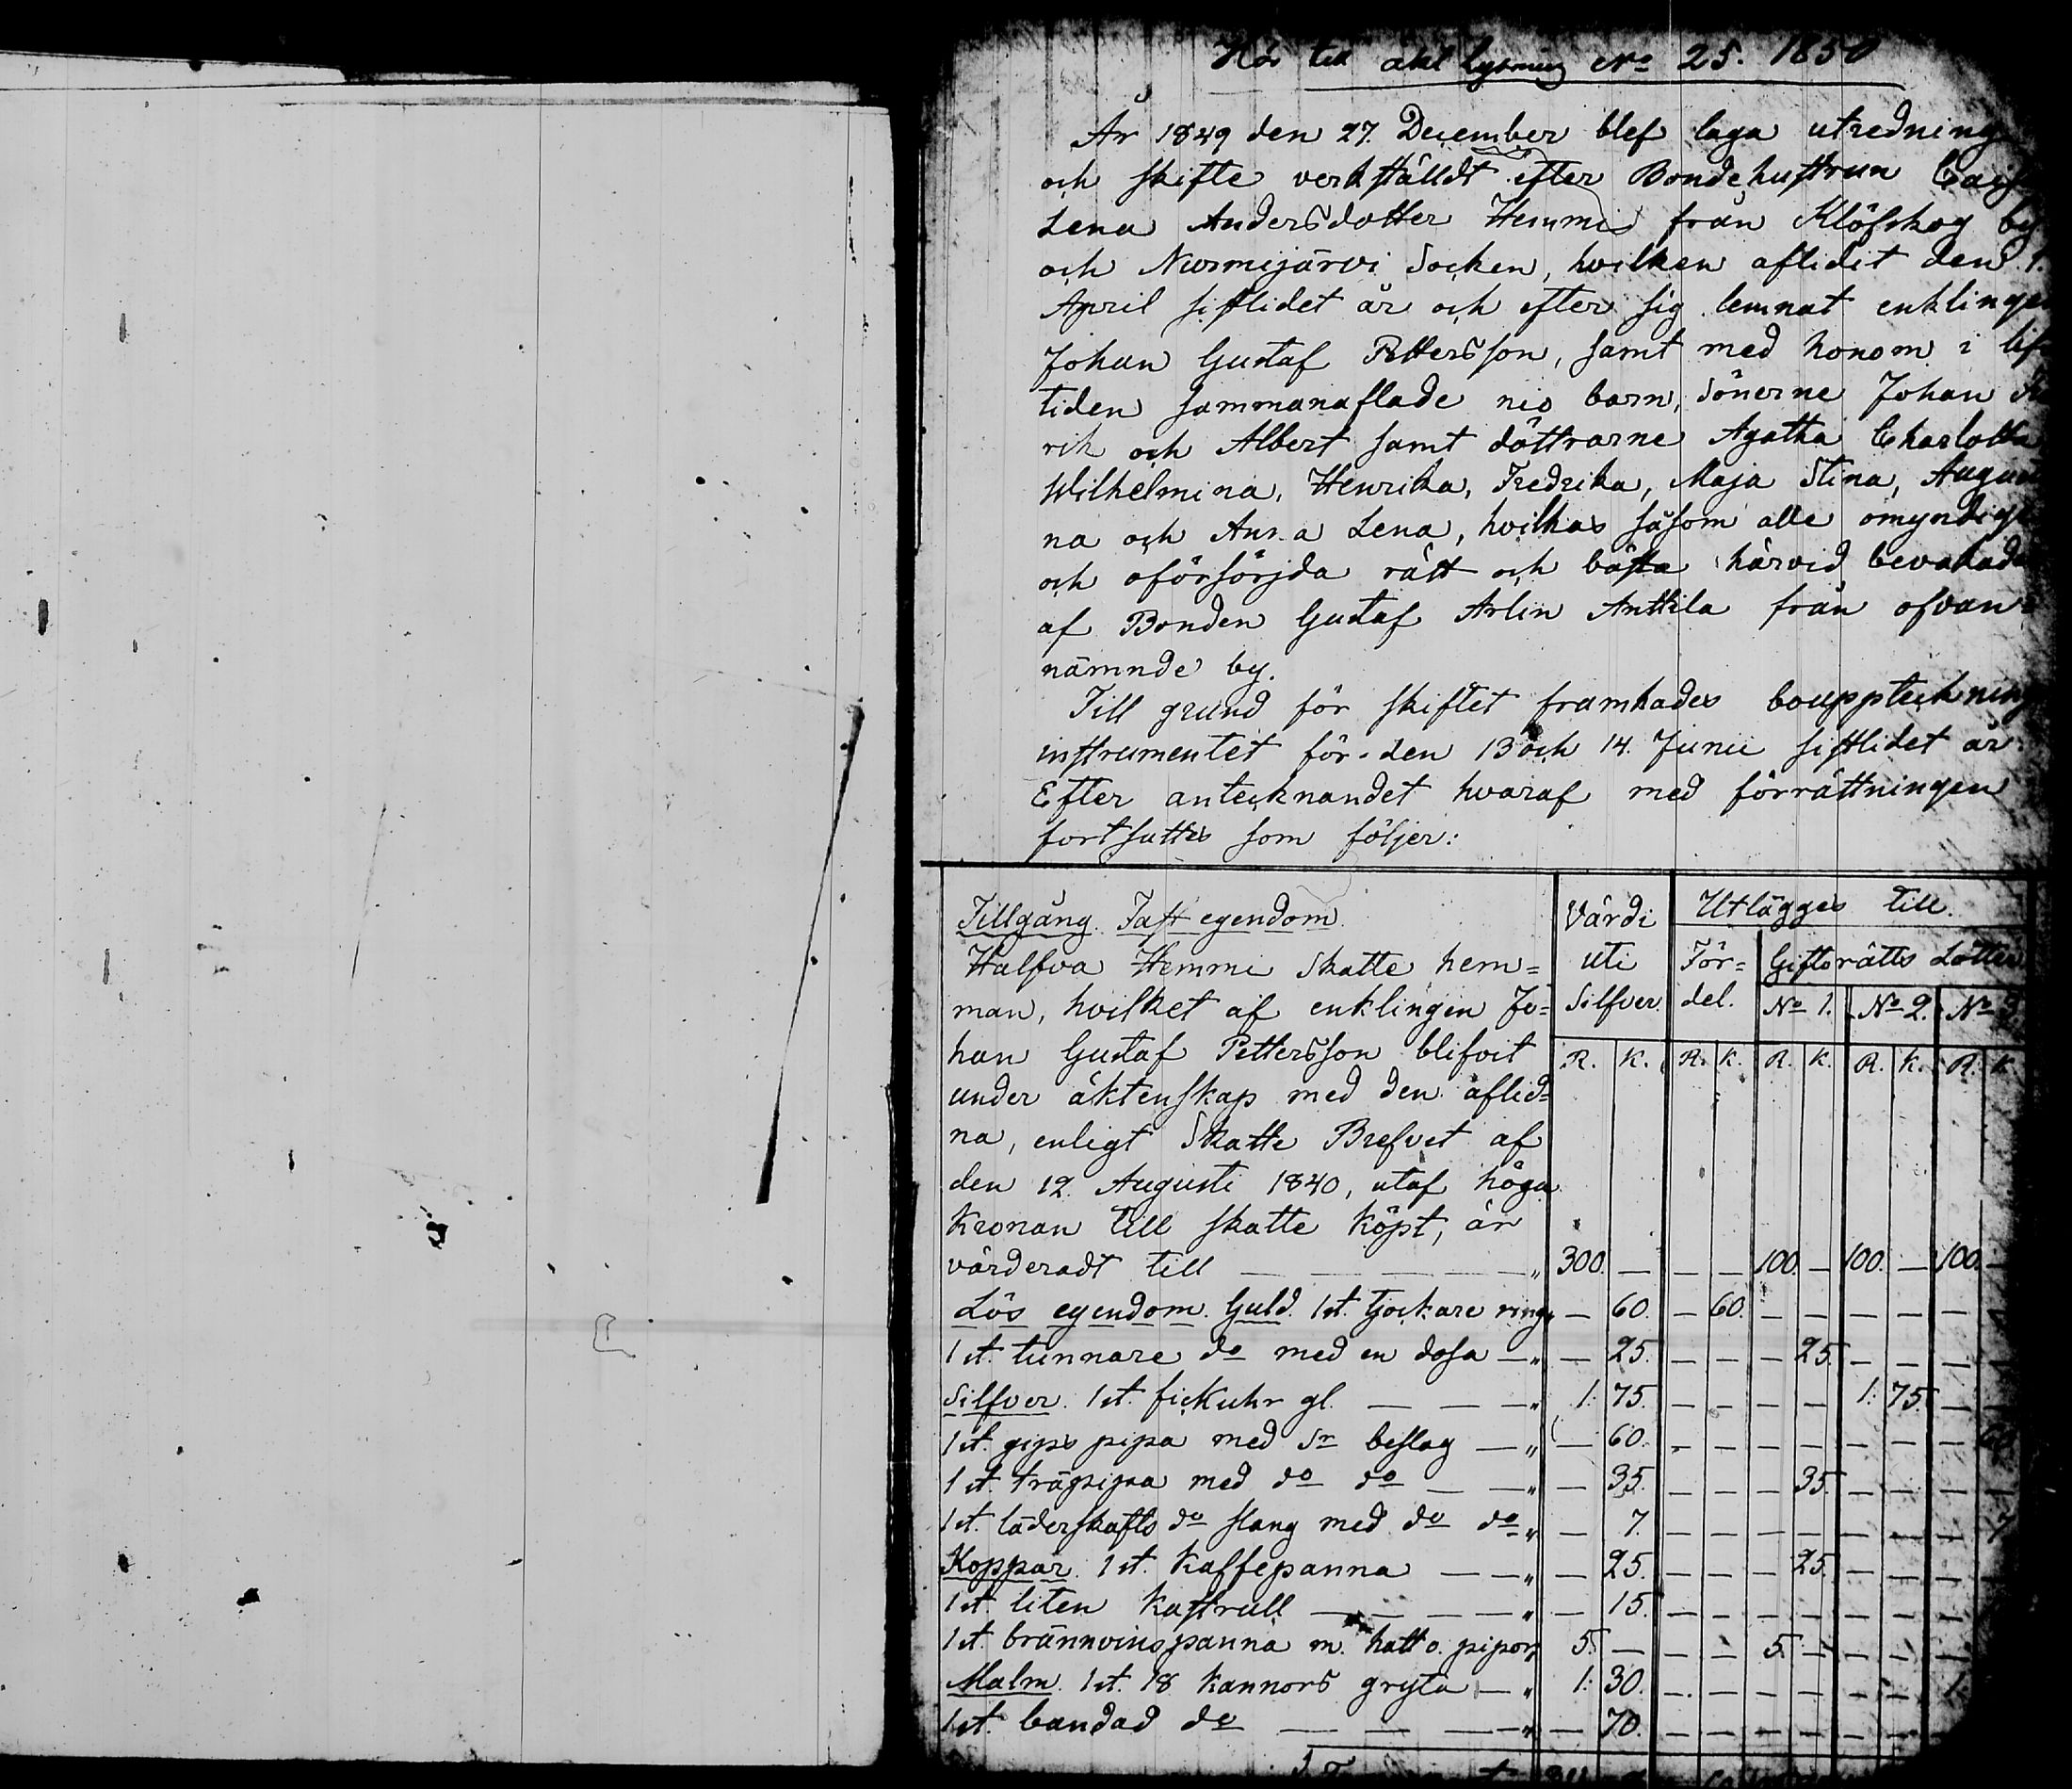 Hör till äkt. lysning No 25. 1850
År 1849 den 27. December blef laga utredning
och skifte verkstäldt efter Bondehustrun Cajsa
Lena Andersdotter Hemmi från Klöfskog by
och Nurmijärvi Socken, hvilken aflidit den 1.
April sistlidet år och efter sig lemnat enklingen
Johan Gustaf Pettersson, samt med honom i lifs
tiden sammanaflade nio barn, Sönerne Johan
rik och Albert samt döttrarne Agatha Charlotta
Wilhelmina, Henrika, Fredrika, Maja Stina, Augusti
na och Anna Lena, hvilkas såsom alle omyndige
och oförsörjda rätt och bästa härvid bevakades
af Bonden Gustaf Arlin Anttila från ofvan=
nämnde by.
Till grund för skiftet framhades bouppteckning
instrumentet för den 13 och 14. Junii sistlidet år.
Efter antecknandet hvaraf med förrättningen
fortsattes som följer:
Tillgång. Fast egendom. Värdi uti Silfver. Utlägges till.
För=del. Giftorätts Lotter
No 1. No 2. No 3.
R. K. R. K. R. K. R. K. R. K
Halfva Hemmi Skatte hem=
man, hvilket af enklingen Jo=
han Gustaf Pettersson blifvit
under äktenskap med den aflid=
na, enligt Skatte Brefvet af
den 12. Augusti 1840, utaf höga
Kronan till skatte köpt, är
värderadt till — — — — — " 300. — — — 100. — 100. — 100. —
Lös egendom. Guld. 1 st. tjockare ring " — 60. — 60. — — — — — —
1 st. tunnare do med en dosa — " — 25. — — — 25. — — — —
Silfver. 1 st. fickuhr gl. — — — " 1. 75. — — — — 1. 75. — —
1 st. gips pipa med Sr beslag — " — 60. — — — — — — — 60.
1 st. träpipa med do do — — " — 35. — — — 35. — — — —
1 st. läderskafts do slang med do do " — 7. — — — — — — — 7
Koppar. 1 st. Kaffepanna — — " — 25. — — — 25. — — — —
1 st. liten Kastrull — — — — " — 15. — — — — — — — —
1 st. brännvinspanna m. hatt o. pipor " 5. — — — 5. — — — — —
Malm. 1 st. 18 Kannors gryta — " 1. 30. — — — — — — 1.
1 st. bandad do — — — — " — 70. — — — — — —